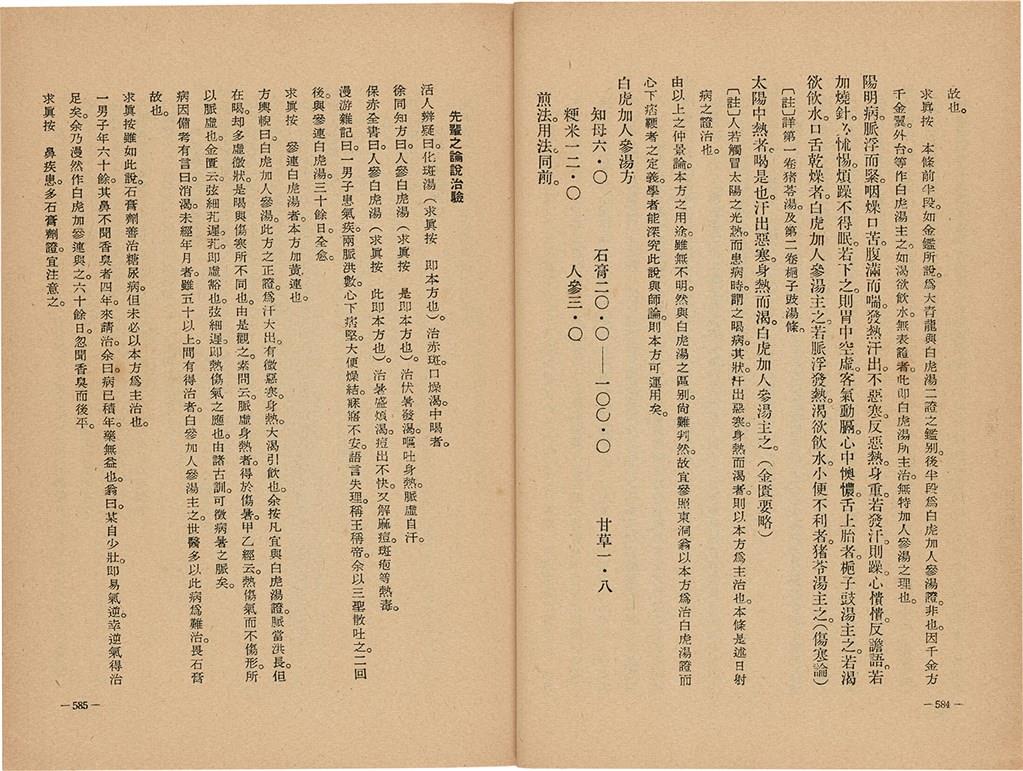 故也。
求眞按　本條前半段如金鑑所說爲大靑龍與白虎湯二證之鑑别後半段爲白虎加人參湯證非也因千金方
千金翼外台等作白虎湯主之如渴欲飮水無表證者此即白虎湯所主治無特加人參湯之理也。
陽明病脈浮而緊咽燥口苦腹滿而喘發熱汗出不惡寒反惡熱身重若發汗則躁心憒憒反譫語若
加燒針必怵惕煩躁不得眠若下之則胃中空虛客氣動膈心中懊憹舌上胎者梔子豉湯主之若渴
欲飮水口舌乾燥者白虎加人參湯主之若脈浮發熱渴欲飮水小便不利者猪苓湯主之（傷寒論）
〔註〕詳第一卷猪苓湯及第二卷梔子豉湯條。
太陽中熱者暍是也汗出惡寒身熱而渴白虎加人參湯主之。（金匱要略）
〔註〕人若觸冒太陽之光熱而患病時謂之暍病其狀汗出惡寒身熱而渴者則以本方爲主治也本條是述日射
病之證治也。
由以上之仲景論本方之用途雖無不明然與白虎湯之區别尙難判然故宜參照東洞翁以本方爲治白虎湯證而
心下痞鞕者之定義學者能深究此說與師論則本方可運用矣。
白虎加人參湯方
知母六·〇　石膏二〇·〇——一〇〇·〇　甘草一·八
粳米一二·〇　人參三·〇
煎法。用法同前。
—584—
先輩之論說治驗
活人辨疑曰化斑湯（求眞按　即本方也）治赤斑口燥渴中暍者。
徐同知方曰人參白虎湯（求眞按　是即本方也）治伏暑發渴嘔吐身熱脈虛自汗。
保赤全書曰人參白虎湯（求眞按　此即本方也）治暑盛煩渴痘出不快又解麻痘斑疱等熱毒。
漫游雜記曰一男子患氣疾兩脈洪數心下痞堅大便燥結寐寤不安語言失理稱王稱帝余以三聖散吐之二回
後與參連白虎湯三十餘日全愈。
求眞按　參連白虎湯者本方加黃連也。
方輿輗曰白虎加人參湯此方之正證爲汗大出有微惡寒身熱大渴引飮也余按凡宜與白虎湯證脈當洪長但
在暍却多虛微狀是暍與傷寒所不同也由是觀之素問云脈虛身熱者得於傷暑甲乙經云熱傷氣而不傷形所
以脈虛也金匱云弦細芤遲芤即虛豁也弦細遲即熱傷氣之應也由諸古訓可徵病暑之脈矣。
病因備考有言曰消渴未經年月者雖五十以上間有得治者白參加人參湯主之世醫多以此病爲難治畏石膏
故也。
求眞按雖如此說石膏劑善治糖尿病但未必以本方爲主治也。
一男子年六十餘其鼻不聞香臭者四年來請治余曰病已積年藥無益也翁曰某自少壯即易氣逆幸逆氣得治
足矣余乃漫然作白虎加參連與之六十餘日忽聞香臭而後平。
求眞按　鼻疾患多石膏劑證宜注意之。
—585—